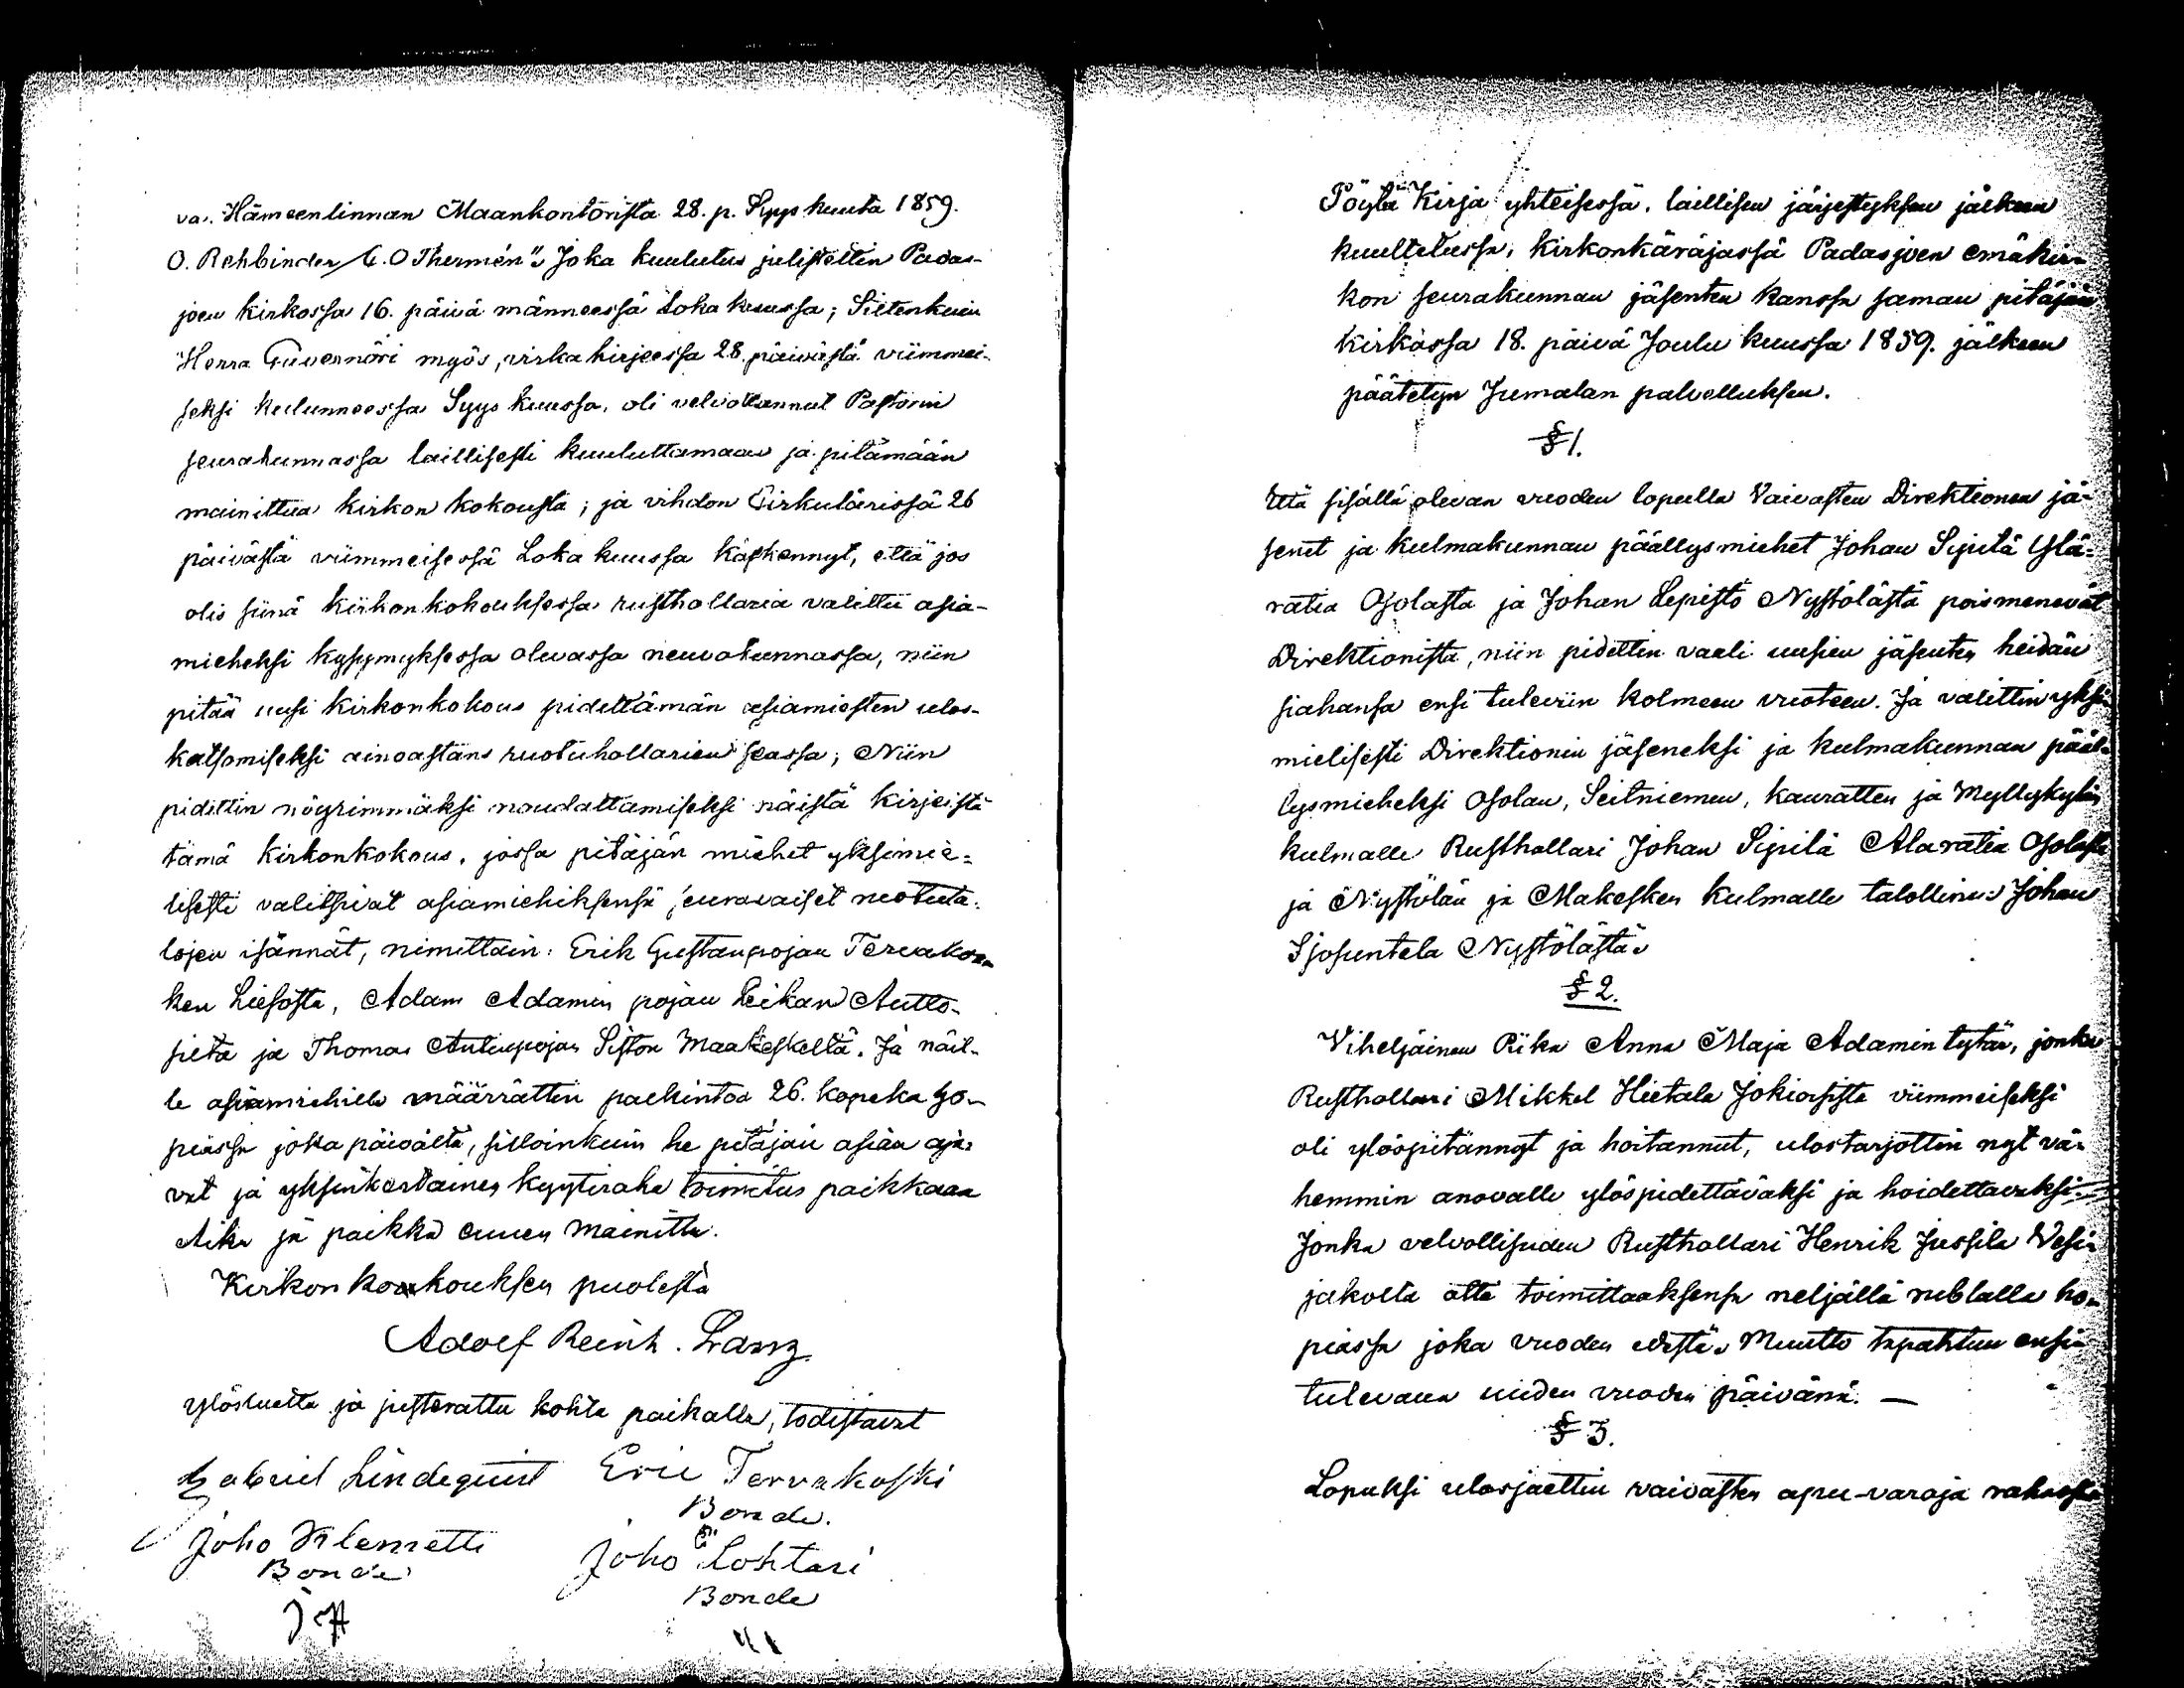 va. Hämeenlinnan Maankontorista 28. p. Syys kuuta 1859.
O. Rehbinder / C. O Thermén". Joka kuulutus julistettin Padas-
joen kirkossa 16. päivä männeessä Loka kuussa; Sittenkuin
Herra Guvernöri myös, virka kirjeessa 28. päivästä viimmei-
seksi kulunneessa Syys kuussa, oli velvottannut Pastorin
seurakunnassa laillisesti kuuluttamaan ja pitämään
mainittua kirkon kokousta; ja vihdon Cirkulärissä 26
päivästä viimmeisessä Loka kuussa käskennyt, että jos
olis siinä kirkonkokouksessa rusthollaria valittu asia-
mieheksi kysymyksessa olevassa neuvokunnassa, niin
pitää uusi kirkonkokous pidettämän asiamiesten ulos-
katsomiseksi ainoastans ruotuhollarien seassa; Niin
pidettin nöyrimmäksi noudattamiseksi näistä kirjeistä
tämä kirkonkokous, jossa pitäjän miehet yksimie-
lisesti valitsivat asiamiehiksensä seuravaiset ruotuta-
lojen isännät, nimittäin: Erik Gustaupojan Tervakos-
ken Liesosta, Adam Adamin pojan Leikan Autto-
sista ja Thomas Antinpojan Siston Maakeskeltä. Ja näil-
le asiamiehille määrättin palkintoa 26. kopeka ho-
piassa joka päivältä, silloinkuin he pitäjän asian aja-
vat ja yksinkertainen kyytiraha toimitus paikkaan
Aika ja paikka ennen mainittu.
Kirkon kokouksen puolesta
Adolf Reinh. Lang.
ylösluettu ja justerattu kohta paikalla, todistavat
Gabriel Lindequist Eric Tervakoski
Bonde.
Joho Klemetti Joho Lohtari
Bonde Bonde
Pöytä Kirja yhteisessä, laillisen järjestyksen jälkeen
kuultetussa, kirkonkäräjassä Padasjoen emäkir-
kon seurakunnan jäsenten kanssa saman pitäjän
kirkossa 18. päivä Joulu kuussa 1859. jälkeen
päätetyn Jumalan palvelluksen.
§ 1.
Että sisällä olevan vuoden lopulla Vaivasten Direktionen jä-
senet ja kulmakunnan päällysmiehet Johan Sipilä Ylä-
ratia Osolasta ja Johan Lepistö Nystölästä poismenevät
Direktionista, niin pidettin vaali uusien jäsenten heidän
siahansa ensi tuleviin kolmeen vuoteen. Ja valittin yksi-
mielisesti Direktionin jäseneksi ja kulmakunnan pääl-
lysmieheksi Osolan, Seitniemen, kauratten ja Myllykylän
kulmalle Rusthollari Johan Sipilä Alaratia Osolasta
ja Nystölän ja Makesken kulmalle talollinen Johan
Isosuntela Nystölästä.
§ 2.
Viheljäinen Piika Anna Maja Adamin tytär, jonka
Rusthollari Mikkel Hietala Jokioisista viimmeiseksi
oli ylöspitännyt ja hoitannut, ulostarjottin nyt vä-
hemmin anovalle ylöspidettäväksi ja hoidettavaksi.
Jonka velvollisuden Rusthollari Henrik Jussila Vesi-
jakolta otta toimittaaksensa neljällä rublalla ho-
piassa joka vuoden edestä. Muutto tapahtuu ensi
tulevana uuden vuoden päivänä. —
§ 3.
Lopuksi ulosjaettiin vaivasten apu-varoja rahassa